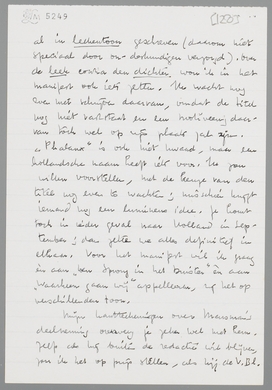 5249
al in leekentoon geschreven (daarom niet
speciaal door on-deskundigen verzorgd). Over
de leek contra den dichter, wou ik in het
manifest ook iets zetten. Ik wacht nog
even met schrijven daarvan, omdat de titel
nog niet vaststaat en een motiveering daar-
van toch wel op zijn plaats zal zijn.
"Phalanx" is ook niet kwaad, maar een
hollandsche naam heeft iets voor. Ik zou
willen voorstellen, met de keuze van den
titel nog even te wachten; misschien krijgt
iemand nog een lumineus idee. Je komt
toch in ieder geval naar Holland in Sep-
tember; dan zetten we alles definitief in
elkaar. Voor het manifest wil ik graag
én aan "Een Sprong in het Duister" én aan
"Waarheen gaan wij" appelleeren, zij het op
verschillenden toon.
Mijn kantteekeningen over Marsman's
deelneming
zelf als hij buiten de redactie wil blijven,
zou ik het op prijs stellen, als hij de V.Bl.